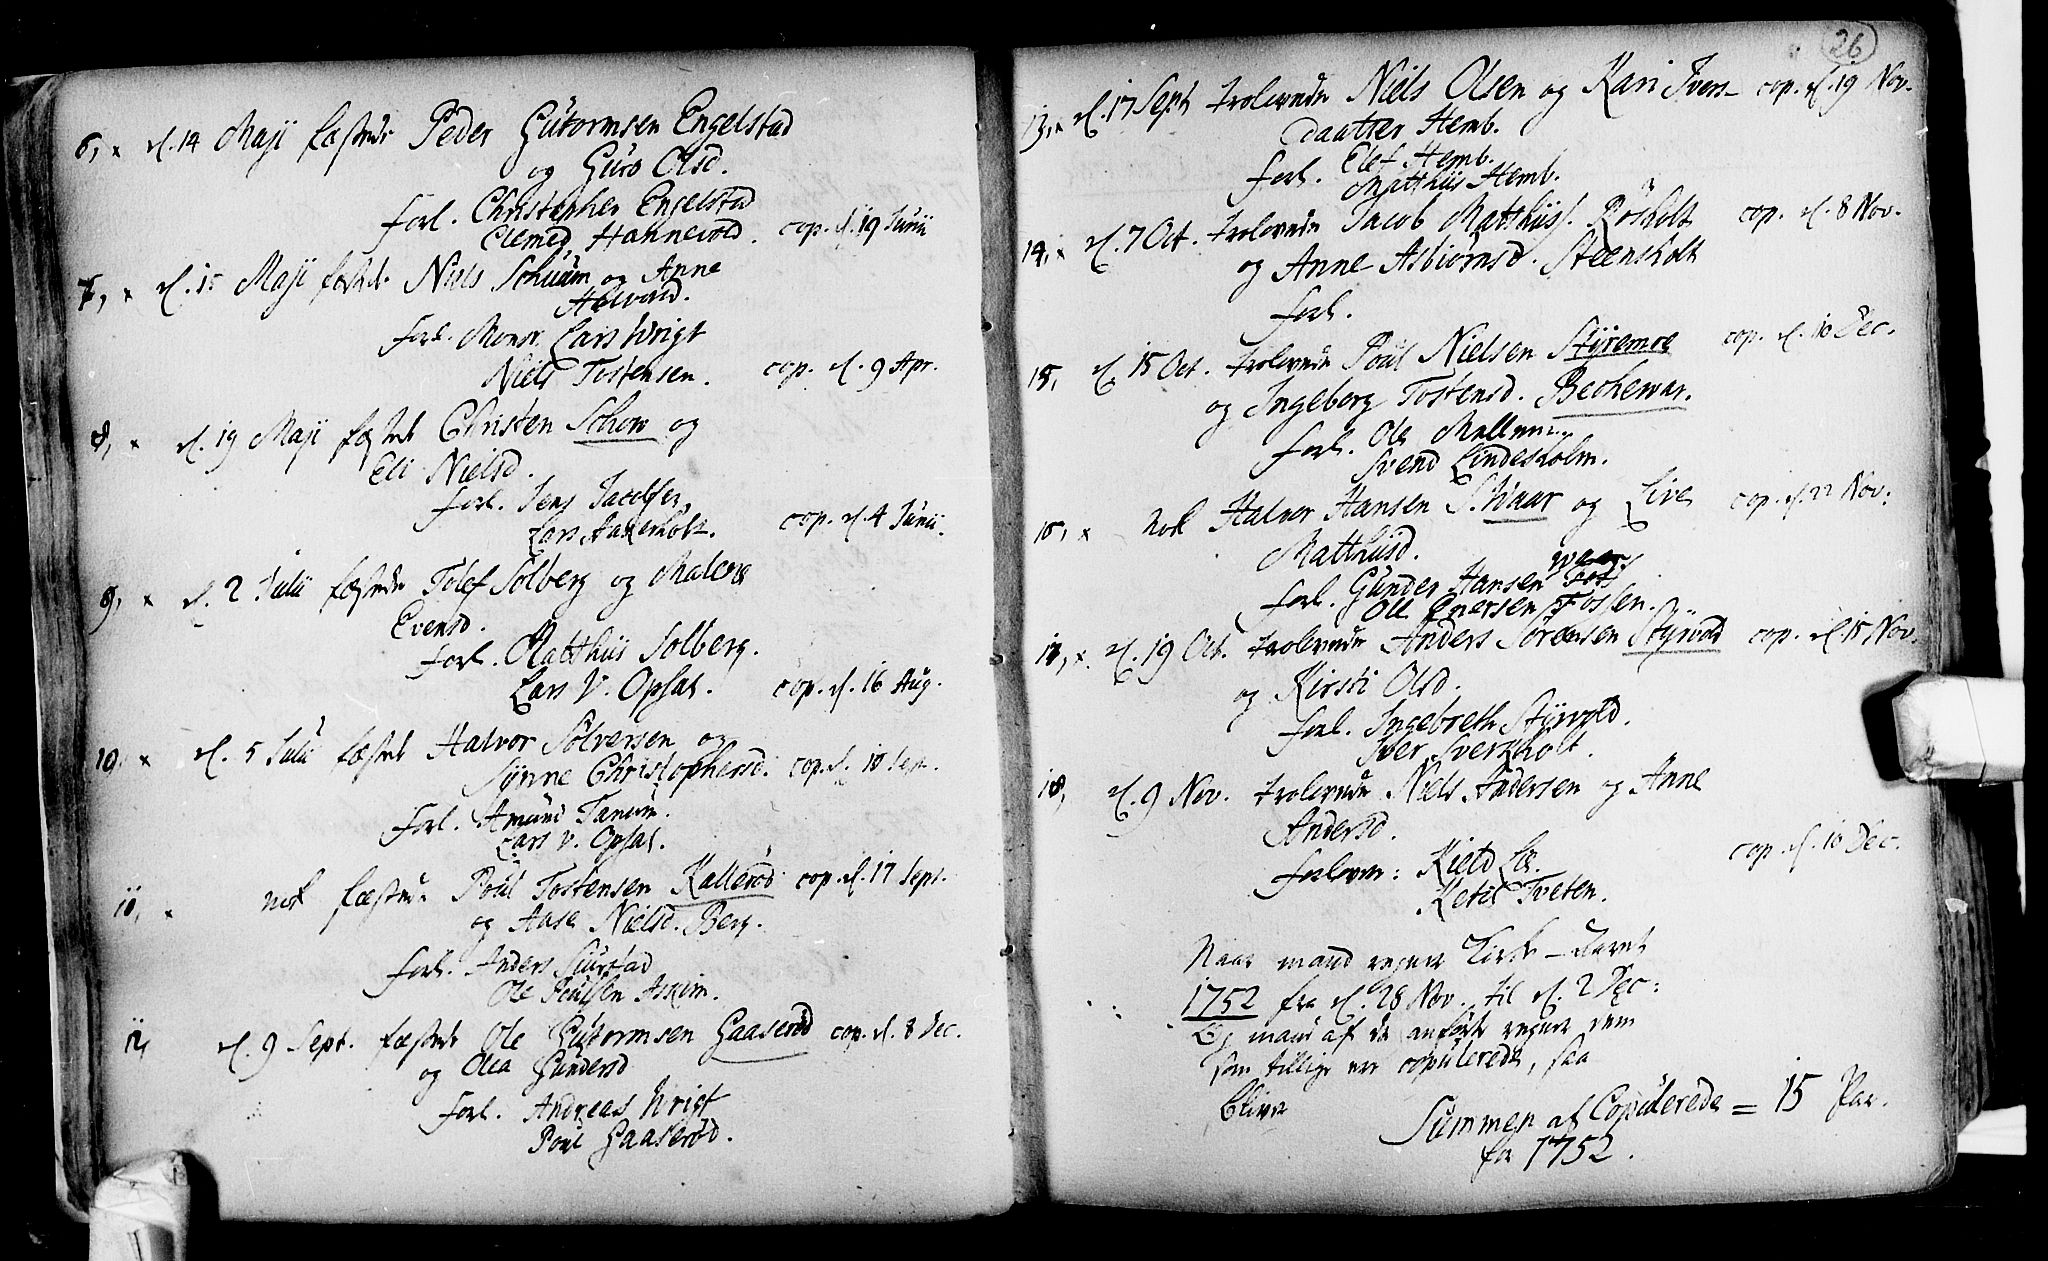 6, x d. 14 Maji fæstede Peder Gutormsen Engelstad
og Guro Olsd.
forl. Christopher Engelstad
Clemed Hannevold. cop. d. 19 Junii
7, x d. 15 Maji fæstede Niels Schuum og Anne
Halvord.
forl. Monsr. Lars Wrigt
Niels Tostensen. cop. d. 9 Apr.
8, x d. 19 Maji fæstede Christen Schow og
Eli Nielsd.
forl. Jens
Lars Aaserholt. cop. d. 4 Junii.
9, x d. 2 Julii fæstede Tolef Solberg og Malene
Evensd.
forl. Matthiis Solberg.
Lars V. Opsal. cop. d. 16 Aug.
10, x d. 5 Julii fæstede Halvor Solversen og
Synne Christophersd. cop. d. 10 Sept.
forl. Amund Tanum.
Lars V. Opsal.
11, x nok fæstede Poul Tostensen Kallerød cop. d. 17 Sept.
og Aase Nielsd. Berg.
forl. Anders Siurstad
Ole Poulsen Askim.
12, d. 9 Sept. fæstede Ole Gutormsen Gaaserød cop. d. 8 Dec.
og Olea Gundersd
forl. Andreas Wrigt
Poul Gaaserød.
26
13, x d. 17 Sept trolovede Niels Olsen og Kari Ivers- cop. d. 19 Nov.
daatter Hemb.
forl. Elef Hemb.
Matthiis Hemb.
14, x d. 7 Oct. trolovede Jacob Matthiiss. Røsholt cop. d. 8 Nov.
og Anne Asbiørnsd. Steensholt
forl.
15, d. 15 Oct. trolovede Poul Nielsen Styremoe cop. d. 10 Dec.
og Ingeborg Tostensd. Bechewar.
forl. Ole
Svend Lindesholm.
16, x nok Halvor Hansen Schaar og Live cop. d. 22 Nov:
Matthiisd.
forl. Gunder Hansen
Ole Enersen Fossen.
17, x d. 19 Oct. trolovede Anders Sørensen Styrvold cop. d. 15 Nov.
og Kirsti Olsd.
forl. Ingebreth Styrvold.
Iver Sverkholt.
18, d. 9 Nov. trolovede Niels Andersen og Anne
Andersd.
forlover: Kield Lie. cop. d. 10 Dec.
Ketil Tveten.
Naar mand regner Kirke-Aaret
1752 fra d. 28 Nov. til d. 2 Dec:
Og mand af de anførte regner dem
som tillige ere copulerede, saa
bliver
Summen af Copulerede = 15 Par.
for 1752.